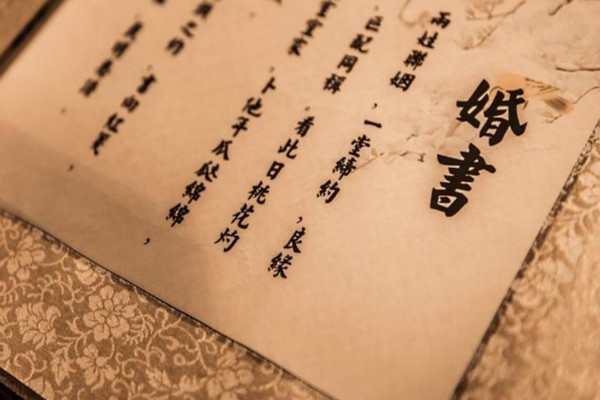 婚書
兩姓聯姻，一堂締約，良緣
匹配同稱。看此日桃花灼
宜室家，卜他年瓜瓞綿綿，
頭之約，書向紅箋，